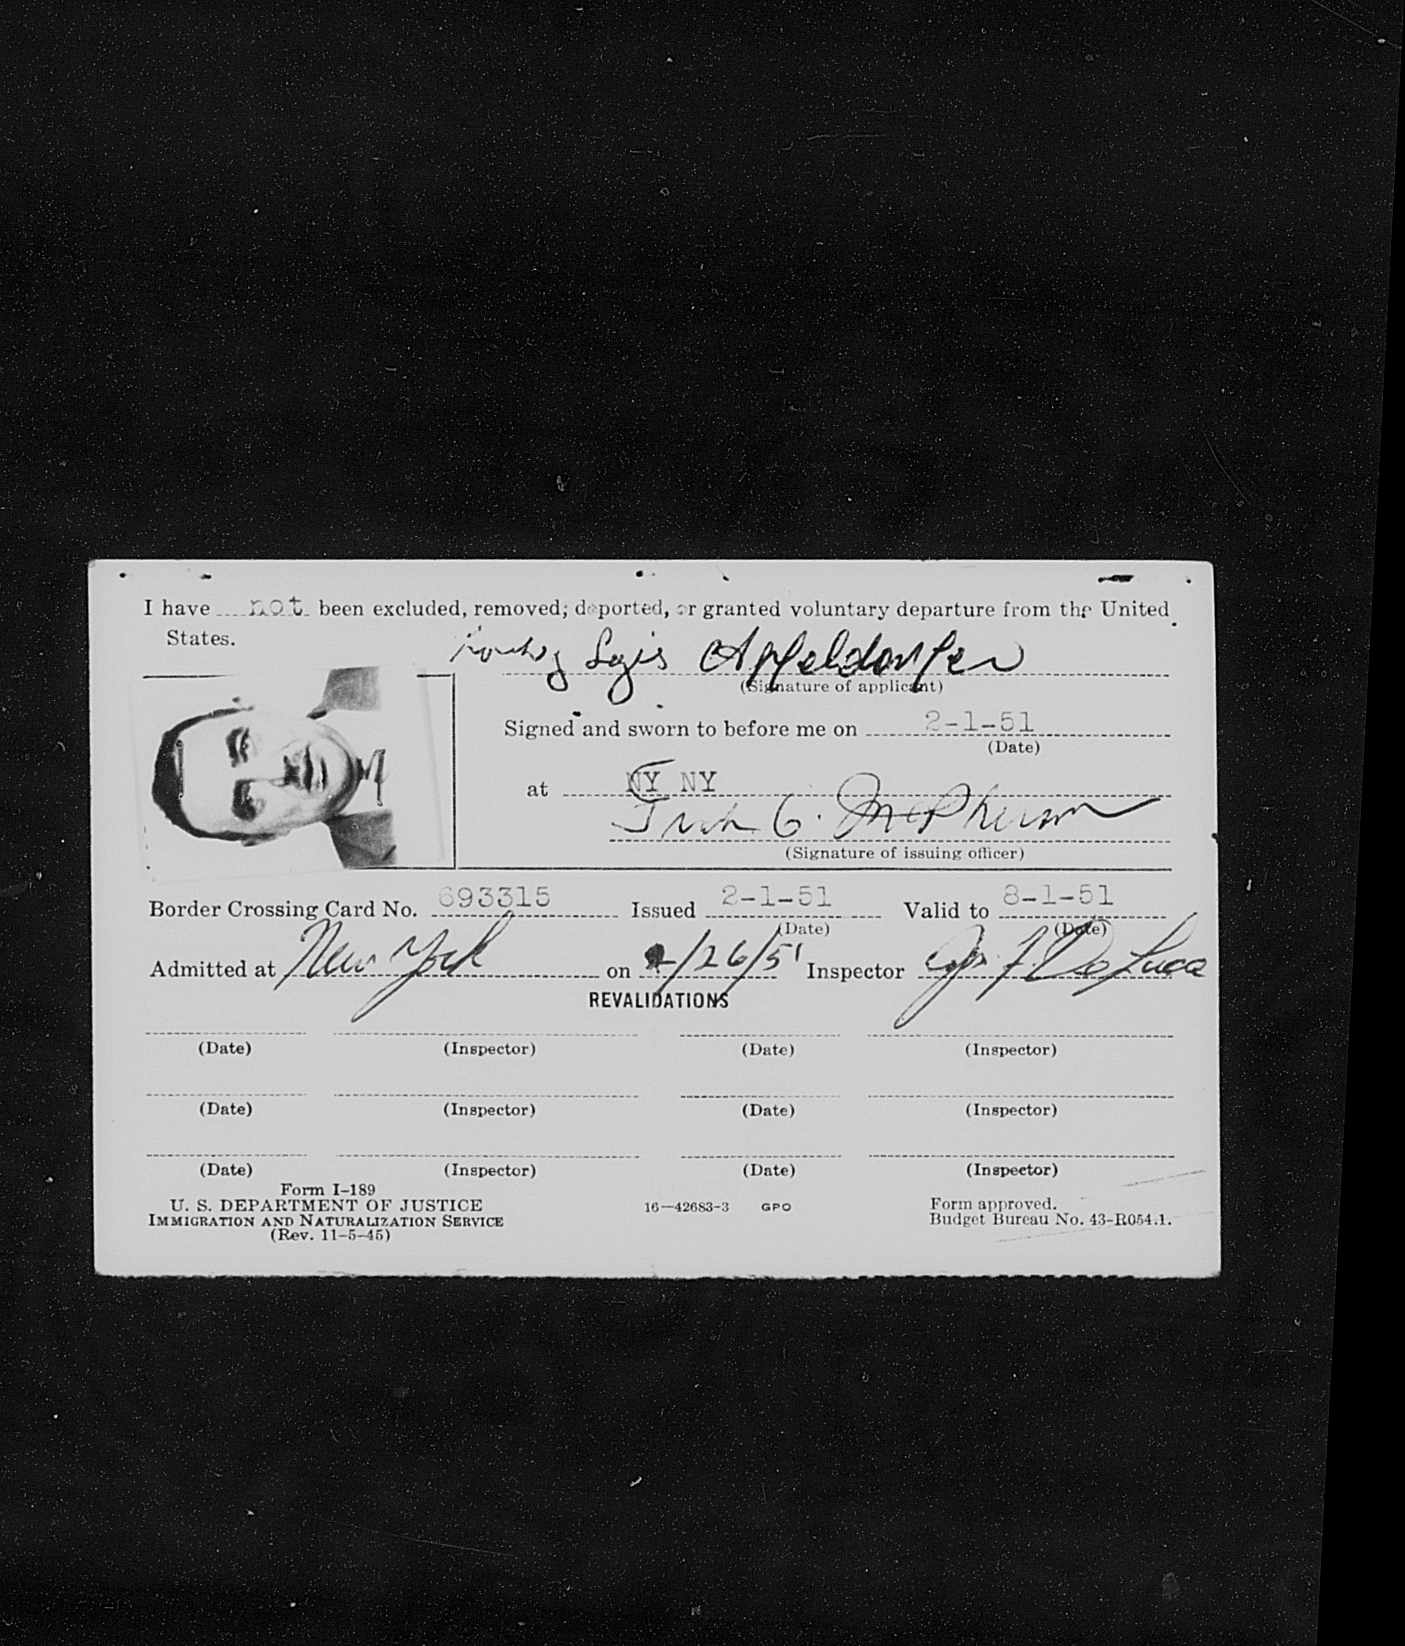 I have not been excluded, removed, deported, or granted voluntary departure from the United
States.
Apfeldorfer
(Signature of applicant)
Signed and sworn to before me on 2-1-51
(Date)
at NY NY
G. McPherson
(Signature of issuing officer)
Border Crossing Card No. 693315 Issued 2-1-51 Valid to 8-1-51
(Date) (Date)
Admitted at New York on /26/51 Inspector F De Luca
REVALIDATIONS
(Date) (Inspector) (Date) (Inspector)
(Date) (Inspector) (Date) (Inspector)
(Date) (Inspector) (Date) (Inspector)
Form I-189
U. S. DEPARTMENT OF JUSTICE
IMMIGRATION AND NATURALIZATION SERVICE
(Rev. 11-5-45)
16—42683-3 GPO
Form approved.
Budget Bureau No. 43-R054.1.